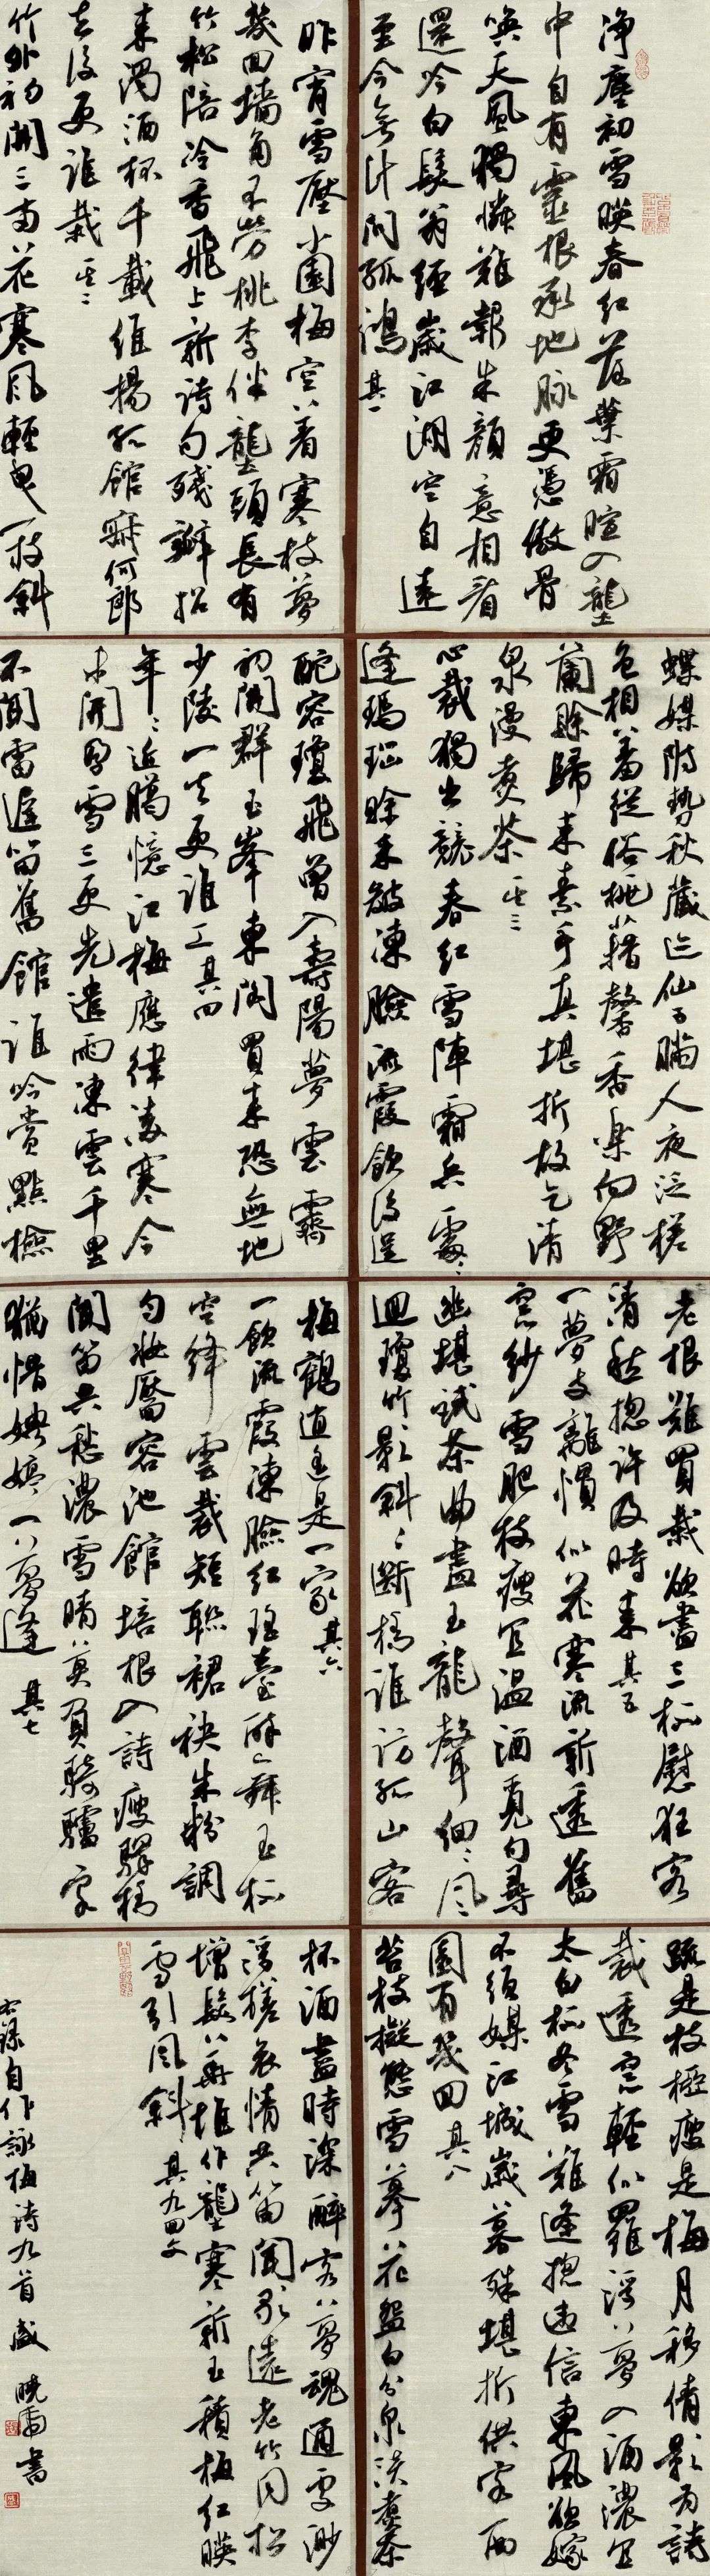 净塵初雪映春紅落葉霜暄入壟
中自有靈根承地脉更憑傲骨
喚天風獨憐難報朱顏意相看
還吟白髮翁經歲江湖空自遠
至今無計問孤鴻其一
昨宵雪壓小園梅空著寒枝夢
幾回墻角不勞桃李伴壟頭長有
竹松陪冷香飛上新詩句殘瓣招
來濁酒杯千載維揚孤館寂何郎
去後更誰栽其二
竹外初開三兩花寒風輕曳一枝斜
蝶媒附勢秋藏迹仙子瞞人夜泛槎
色相羞從俗桃藉馨香樂向野
蘭賒歸來素手真堪折故乞清
泉漫煮茶其三
心裁獨出競春紅雪陣霜兵處處
逢瑪瑙賒來皴凍臉流霞飲後逞
酡容瓊飛曾入壽陽夢雲霽
初開群玉峯東閣買來恐無地
少陵一去更誰工其四
年年近臘憶江梅應律凌寒今
未開因雪三更先遣雨凍雲千里
不聞雷 笛舊館誰吟賞點檢
老根難買栽欲盡三杯慰狂客
清愁摠許及時來其五
一夢支離慣似花寒流新透舊
窗紗雪肥枝瘦宜溫酒覓句尋
幽堪試茶曲盡玉龍聲細細風
迴瓊竹影斜斜斷橋誰訪孤山客
梅鶴逋 是一家其六
一飲流霞凍臉紅瑤臺醉舞玉杯
空絳雲裁短聯裙袂朱粉調
勻妝靨容池館培根入詩瘦驛橋
聞笛共愁濃雪晴莫負騎驢客
猶惜娉婷一夢逢其七
疏是枝椏瘦是梅月移倩影為詩
裁透窗輕似羅浮夢入酒濃宜
太白杯冬雪難逢摠遞信東風欲嫁
不須媒江城歲暮殊堪折供寄西
園有幾回其八
苔枝擬態雪摹花盤白分泉淡煮茶
杯酒盡時深醉客夢魂通處渺
浮槎哀情共笛聞 遠老竹同松
增髮華堆作壟寒新玉積梅紅映
雪引風斜其九四文
右錄自作詠梅詩九首盛曉雨書